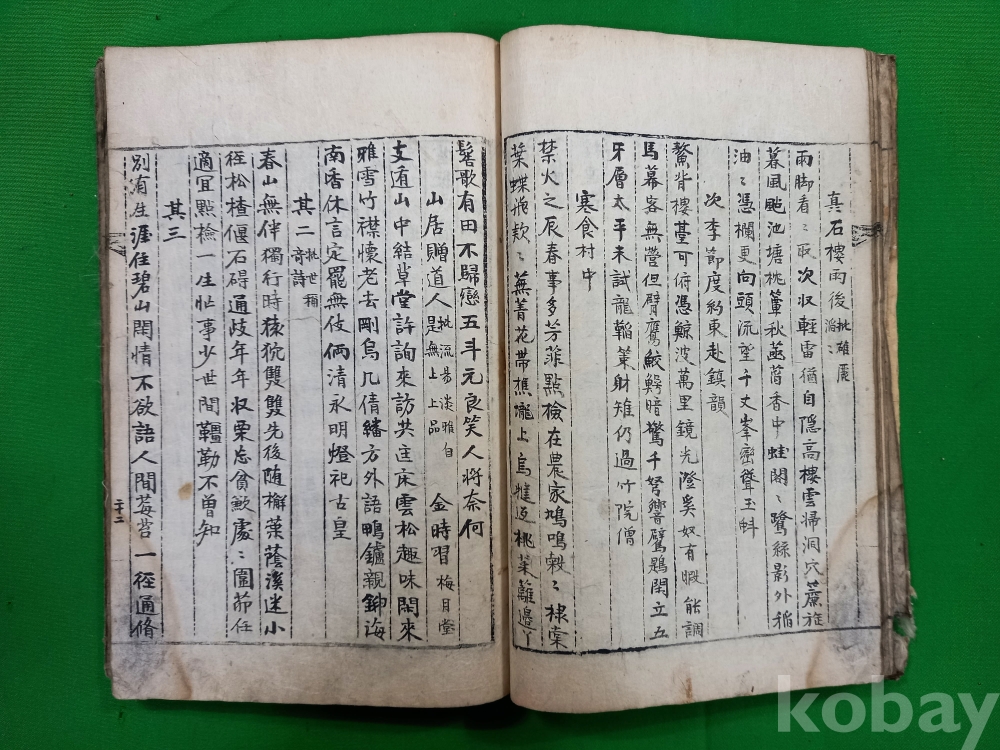 真石樓雨後 批雄麗
滔〻
雨脚看〻取次収輕雷猶自隱高樓雲掃洞穴簾旌
暮風颭池塘桃簟秋菡萏香中蛙閣〻鷺絲影外稻
油〻憑欄更向頭流望千丈峯巒聳玉蚪
次李節度約東赴鎮韻
鰲背樓臺可俯憑鯨波萬里鏡光澄奚奴有暇能調
馬幕客無營但臂鷹鮫鰐暗驚千弩響鷖鷗閑立五
牙層太平未試龍韜策射雉仍過竹院僧
寒食村中
禁火之辰春事多芳菲點檢在農家鳩鳴穀〻棣棠
葉蝶飛款〻蕪菁花帶樵壠上烏犍返挑菜籬邊丫
髻歌有田不歸戀五斗元良笑人將奈何
山居贈道人 批流湯淡雅自
是無上上品 金時習 梅月堂
支遁山中結草堂許詢來訪共主床雲松趣味閑來
雅雪竹襟懷老去剛烏几倩繙方外語鴨鑪親鉚海
南香休言定罷無伎倆清永明燈祀古皇
其二 批世稱
奇詩
春山無伴獨行時猿狖雙雙先後随檞葉蔭溪迷小
徑松槎偃石碍通歧年年収栗忘貧歉處〻圍茆任
適宜點檢一生忙事少世間韁勒不曾知
其三
別有生涯住碧山閑情不欲語人間莓苔一徑通脩
二十二
kobay